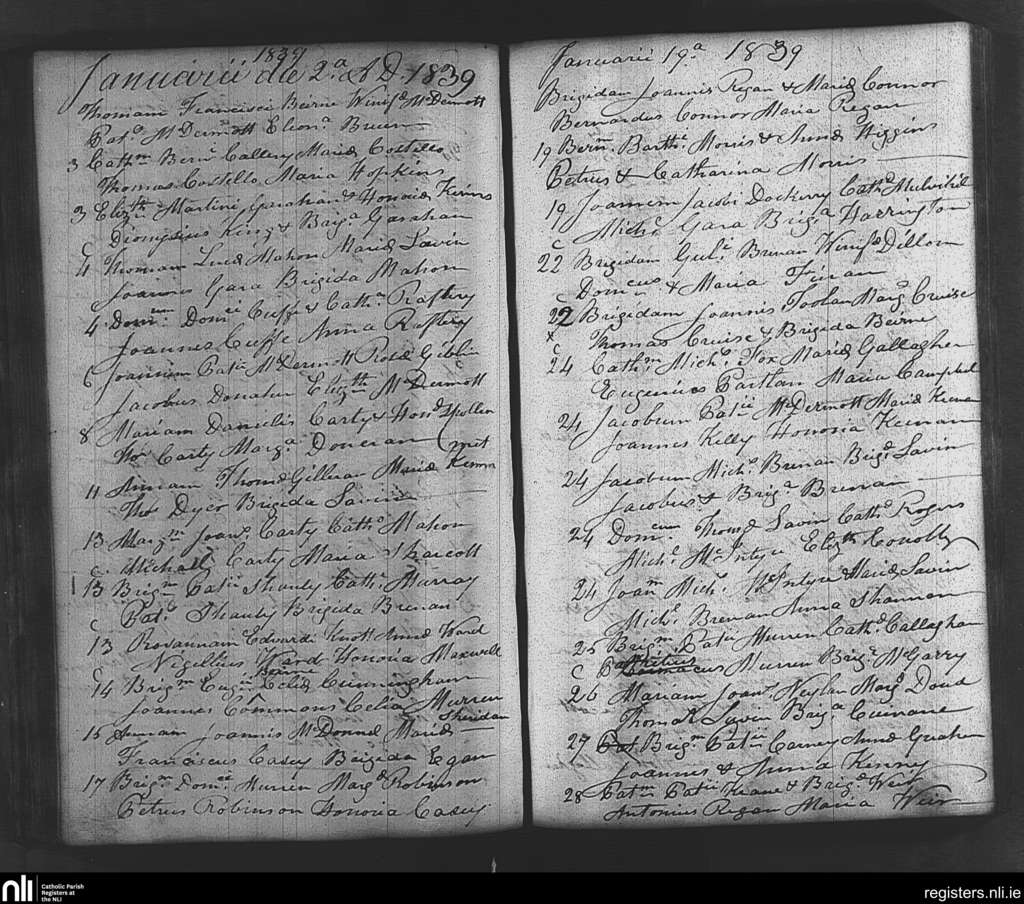 1839
Januarii die 2.a A.D. 1839
Thomam Francisci Beirne Winif.e McDermott
Pat.s McDermott Eleon.a Bruen
3 Cath.m Bern.i Callery Mariæ Costello
Thomas Costello Maria Hopkins
3 Eliz.th Martini Garahan & Honoriæ Kerins
Dionysius King & Brig.a Garahan
C
4 Thomam Lucæ Mahon Mariæ Lavin
Joannes Gara Brigida Mahon
4 Dom.um Dom.ci Cuffe & Cath.æ Raftery
Joannes Cuffe Anna Raftery
6 Joannem Patii McDermott Rosæ Giblin
Jacobus Donalan Eliz.th McDermott
8 Mariam Danielis Carty & Hon.æ Mullen
Tho.s Carty Marg.a Doneran
11 Annam Thomæ Gilleran Mariæ
Tho.s Dyer Brigida Lavin
13 Marg.m Joan.s Carty Cath.e Mahon
C Michall Carty Maria Sharcott
13 Brig.m Patii Shanly Cath.e Murray
Pat.s Shanly Brigida Brenan
C
13 Rosannam Edvardi Knott Annæ Ward
Nigellius Ward Honoria Maxwell
C Beirne
14 Brig.m Eug.ii Celiæ Cunningham
Joannes Commons Celia Murren
15 Annam Joannis McDonnel Mariæ Sheridan
Franciscus Casey Brigida Egan
17 Brig.m Dom.ci Murren Marg.æ Robinson
Petrus Robinson Honoria Casey
Januarii 19.a 1839
Brigidam Joannis Regan & Mariæ Connor
Bernardus Connor Maria Regan
19 Bern.m Barth.i Morris & Annæ Higgins
Petrus & Catharina Morris
19 Joannem Jacobi Dockery Cath.æ Mulvihil
Mich.l Gara Brig.a Harrington
C
22 Brigidam Gul.i Brenan Winif.æ Dillon
Dom.cus & Maria Finan
C
22 Brigidam Joannis Toolan Marg.æ Cruise
x Thomas Cruise & Brigida Beirne
C
24 Cath.m Mich.s Fox Mariæ Gallagher
Eugenius Partlan Maria Campbel
24 Jacobum Patii McDermott Mariæ Keenan
Joannes Kelly Honoria Keenan
24 Jacobum Mich.s Brenan Brig.æ Lavin
Jacobus & Brig.a Brenan
24 Dom.cum Thomæ Lavin Cath.æ Rogers
Mich.l McIntyre Eliz.th Conolly
24 Joan.m Mich.s McIntyre & Mariæ Lavin
Mich.l Brenan Anna Shannon
25 Brig.m Patii Murren Cath.æ Callaghan
C Murren Brig.a McGarry
26 Mariam Joan.s Neylan Marg.æ Doud
Thomas Lavin Brig.a Cunane
27 Brig.m Patii Carney Annæ Graham
Joannes & Anna Kenny
28 Pat.m Patii Keane & Brig.æ Weir
Antonius Regan Maria Weir
nli Catholic Parish
Registers at
the NLI
registers.nli.ie